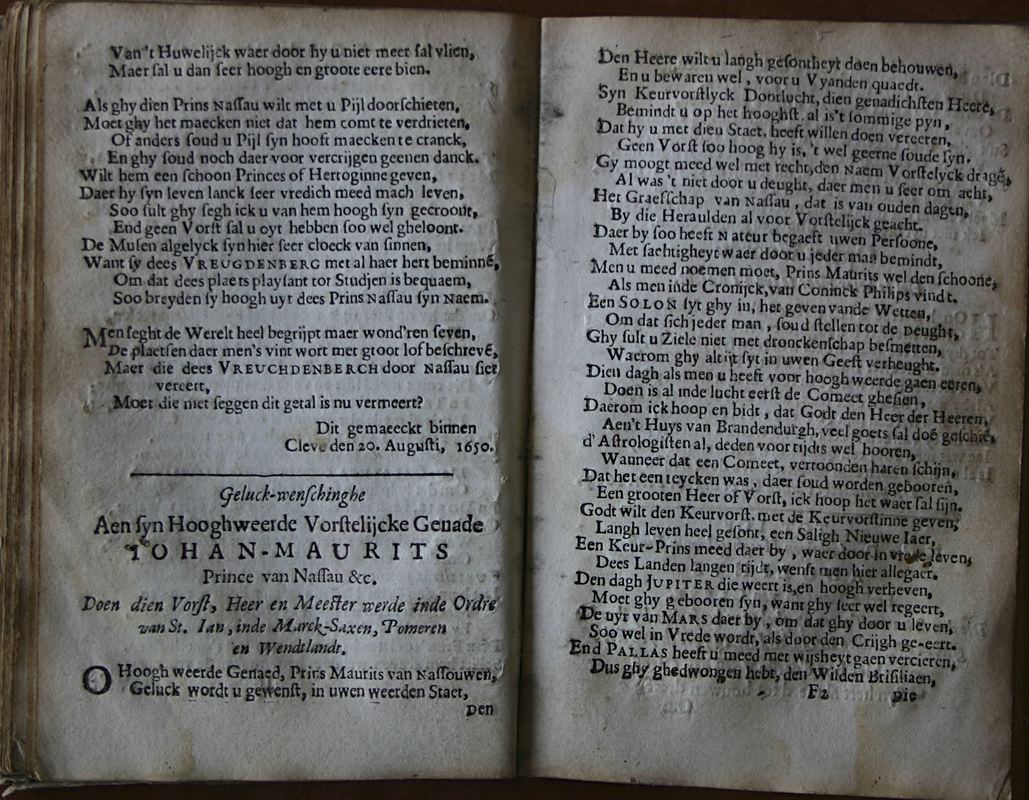 Van 't Huwelijck waer door hy u niet meer ſal vlien,
Maer ſal u dan ſeer hoogh en groote eere bien.
Als ghy dien Prins Naſſau wilt met u Pijl doorſchieten,
Moet ghy het maecken niet dat hem comt te verdrieten,
Of anders ſoud u Pijl ſyn hooft maecken te cranck,
En ghy ſoud noch daer voor vercrijgen geenen danck.
Wilt hem een ſchoon Princes of Hertoginne geven,
Daer hy ſyn leven lanck ſeer vredich meed mach leven,
Soo ſult ghy ſegh ick u van hem hoogh ſyn gecroont,
End geen Vorſt ſal u oyt hebben ſoo wel gheloont.
De Muſen algelyck ſyn hier ſeer cloeck van ſinnen,
Want ſy dees VREUGDENBERG met al haer hert beminnē,
Om dat dees plaets playſant tor Studien is bequaem,
Soo breyden ſy hoogh uyt dees Prins Naſſau ſyn Naem.
Men ſeght de Werelt heel begrijpt maer wond'ren ſeven,
De plaetſen daer men's vint wort met groot lof beſchrevē,
Maer die dees VREUCHDENBERCH door Naſſau ſiet
vereert,
Moet die niet ſeggen dit getal is nu vermeert?
Dit gemaeckt binnen
Cleve den 20. Auguſti, 1650.
Geluck-wenſchinghe
Aen ſyn Hooghweerde Vorſtelijcke Genade
IOHAN-MAURITS
Prince van Naſſau &c.
Doen dien Vorſt, Heer en Meeſter werde inde Ordre
van St. Ian, inde Marck-Saxen, Pomeren
en Wendtlandt.
O Hoogh weerde Genaed, Prins Maurits van Naſſouwen,
Geluck wordt u gewenſt, in uwen weerden Staet,
Den
Den Heere wilt u langh geſontheyt doen behouwen,
En u bewaren wel, voor u Vyanden quaedt.
Syn Keurvorſtlyck Doorlucht, dien genadichſten Heere,
Bemindt u op het hooghſt, al is't ſommige pyn,
Dat hy u met dien Staet, heeft willen doen vereeren,
Geen Vorſt ſoo hoog hy is, 't wel geerne ſoude ſyn.
Gy moogt meed wel met recht, den Naem Vorſtelyck dragē,
Al was 't niet door u deught, daer men u ſeer om acht,
Het Graefſchap van Naſſau, dat is van ouden dagen,
By die Heraulden al voor Vorſtelijck geacht.
Daer by ſoo heeft Nateur begaeft uwen Perſoone,
Met ſachtigheyt waer door u jeder man bemindt,
Men u meed noemen moet, Prins Maurits wel den ſchoone,
Als men inde Cronijck, van Coninck Philips vindt.
Een SOLON ſyt ghy in, het geven vande Wetten,
Om dat ſich jeder man, ſoud ſtellen tot de Deught,
Ghy ſult u Ziele niet met dronckenſchap beſmetten,
Waerom ghy altijt ſyt in uwen Geeſt verheught.
Dien dagh als men u heeft voor hoogh weerde gaen eeren,
Doen is al inde lucht eerſt de Comeet gheſien,
Daerom ick hoop en bidt, dat Godt den Heer der Heeren,
Aen't Huys van Brandendurgh, veel goets ſal doē geſchiē,
d'Aſtrologiſten al, deden voor tijdts wel hooren,
Wanneer dat een Comeet, vertoonden haren ſchijn,
Dat het een teycken was, daer ſoud worden gebooren,
Een grooten Heer of Vorſt, ick hoop het waer ſal ſijn.
Godt wilt den Keurvorſt, met de Keurvorſtinne geven,
Langh leven heel geſont, een Saligh Nieuwe Iaer,
Een Keur-Prins meed daer by, waer door in vrede leven,
Dees Landen langen tijdt, wenſt men hier allegaer.
Den dagh JUPITER die weert is, en hoogh verheven,
Moet ghy gebooren ſyn, want ghy ſeer wel regeert,
De uyr van MARS daer by, om dat ghy door u leven,
Soo wel in Vrede wordt, als door den Crijgh ge-eert.
End PALLAS heeft u meed met wijsheyt gaen vercieren,
Dus ghy ghedwongen hebt, den Wilden Briſiliaen,
F2 Die